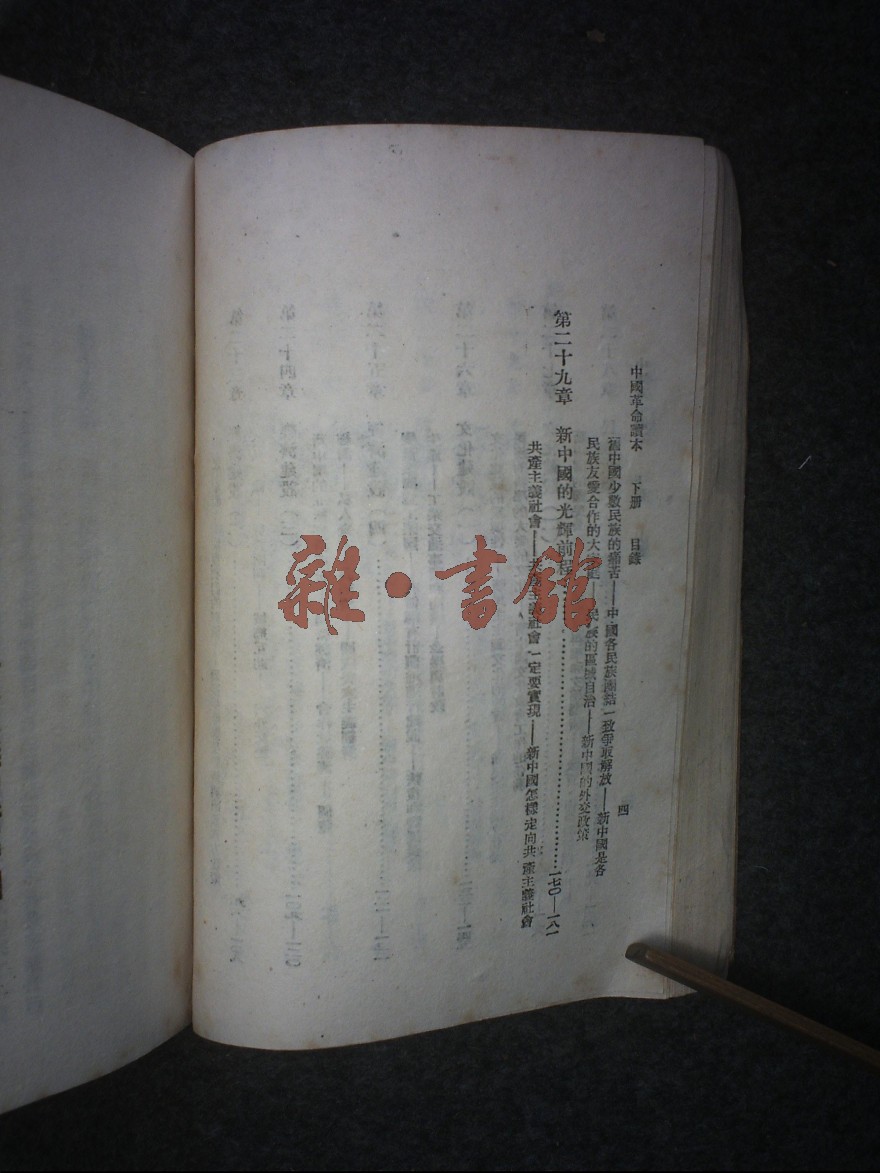 中國革命讀本 下册 目錄 四
舊中國少數民族的痛苦——中國各民族團結一致爭取解放——新中國是各
民族友愛合作的大家庭——民族的區域自治——新中國的外交政策
第二十九章 新中國的光輝前程……一七〇—一八一
共產主義社會——共產主義社會一定要實現——新中國怎樣走向共產主義社會
雜·書館